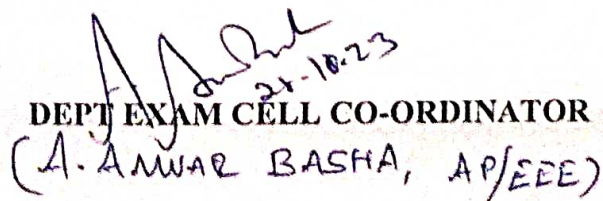 DEPT EXAM CELL CO-ORDINATOR
(A. ANWAR BASHA, AP/EEE)